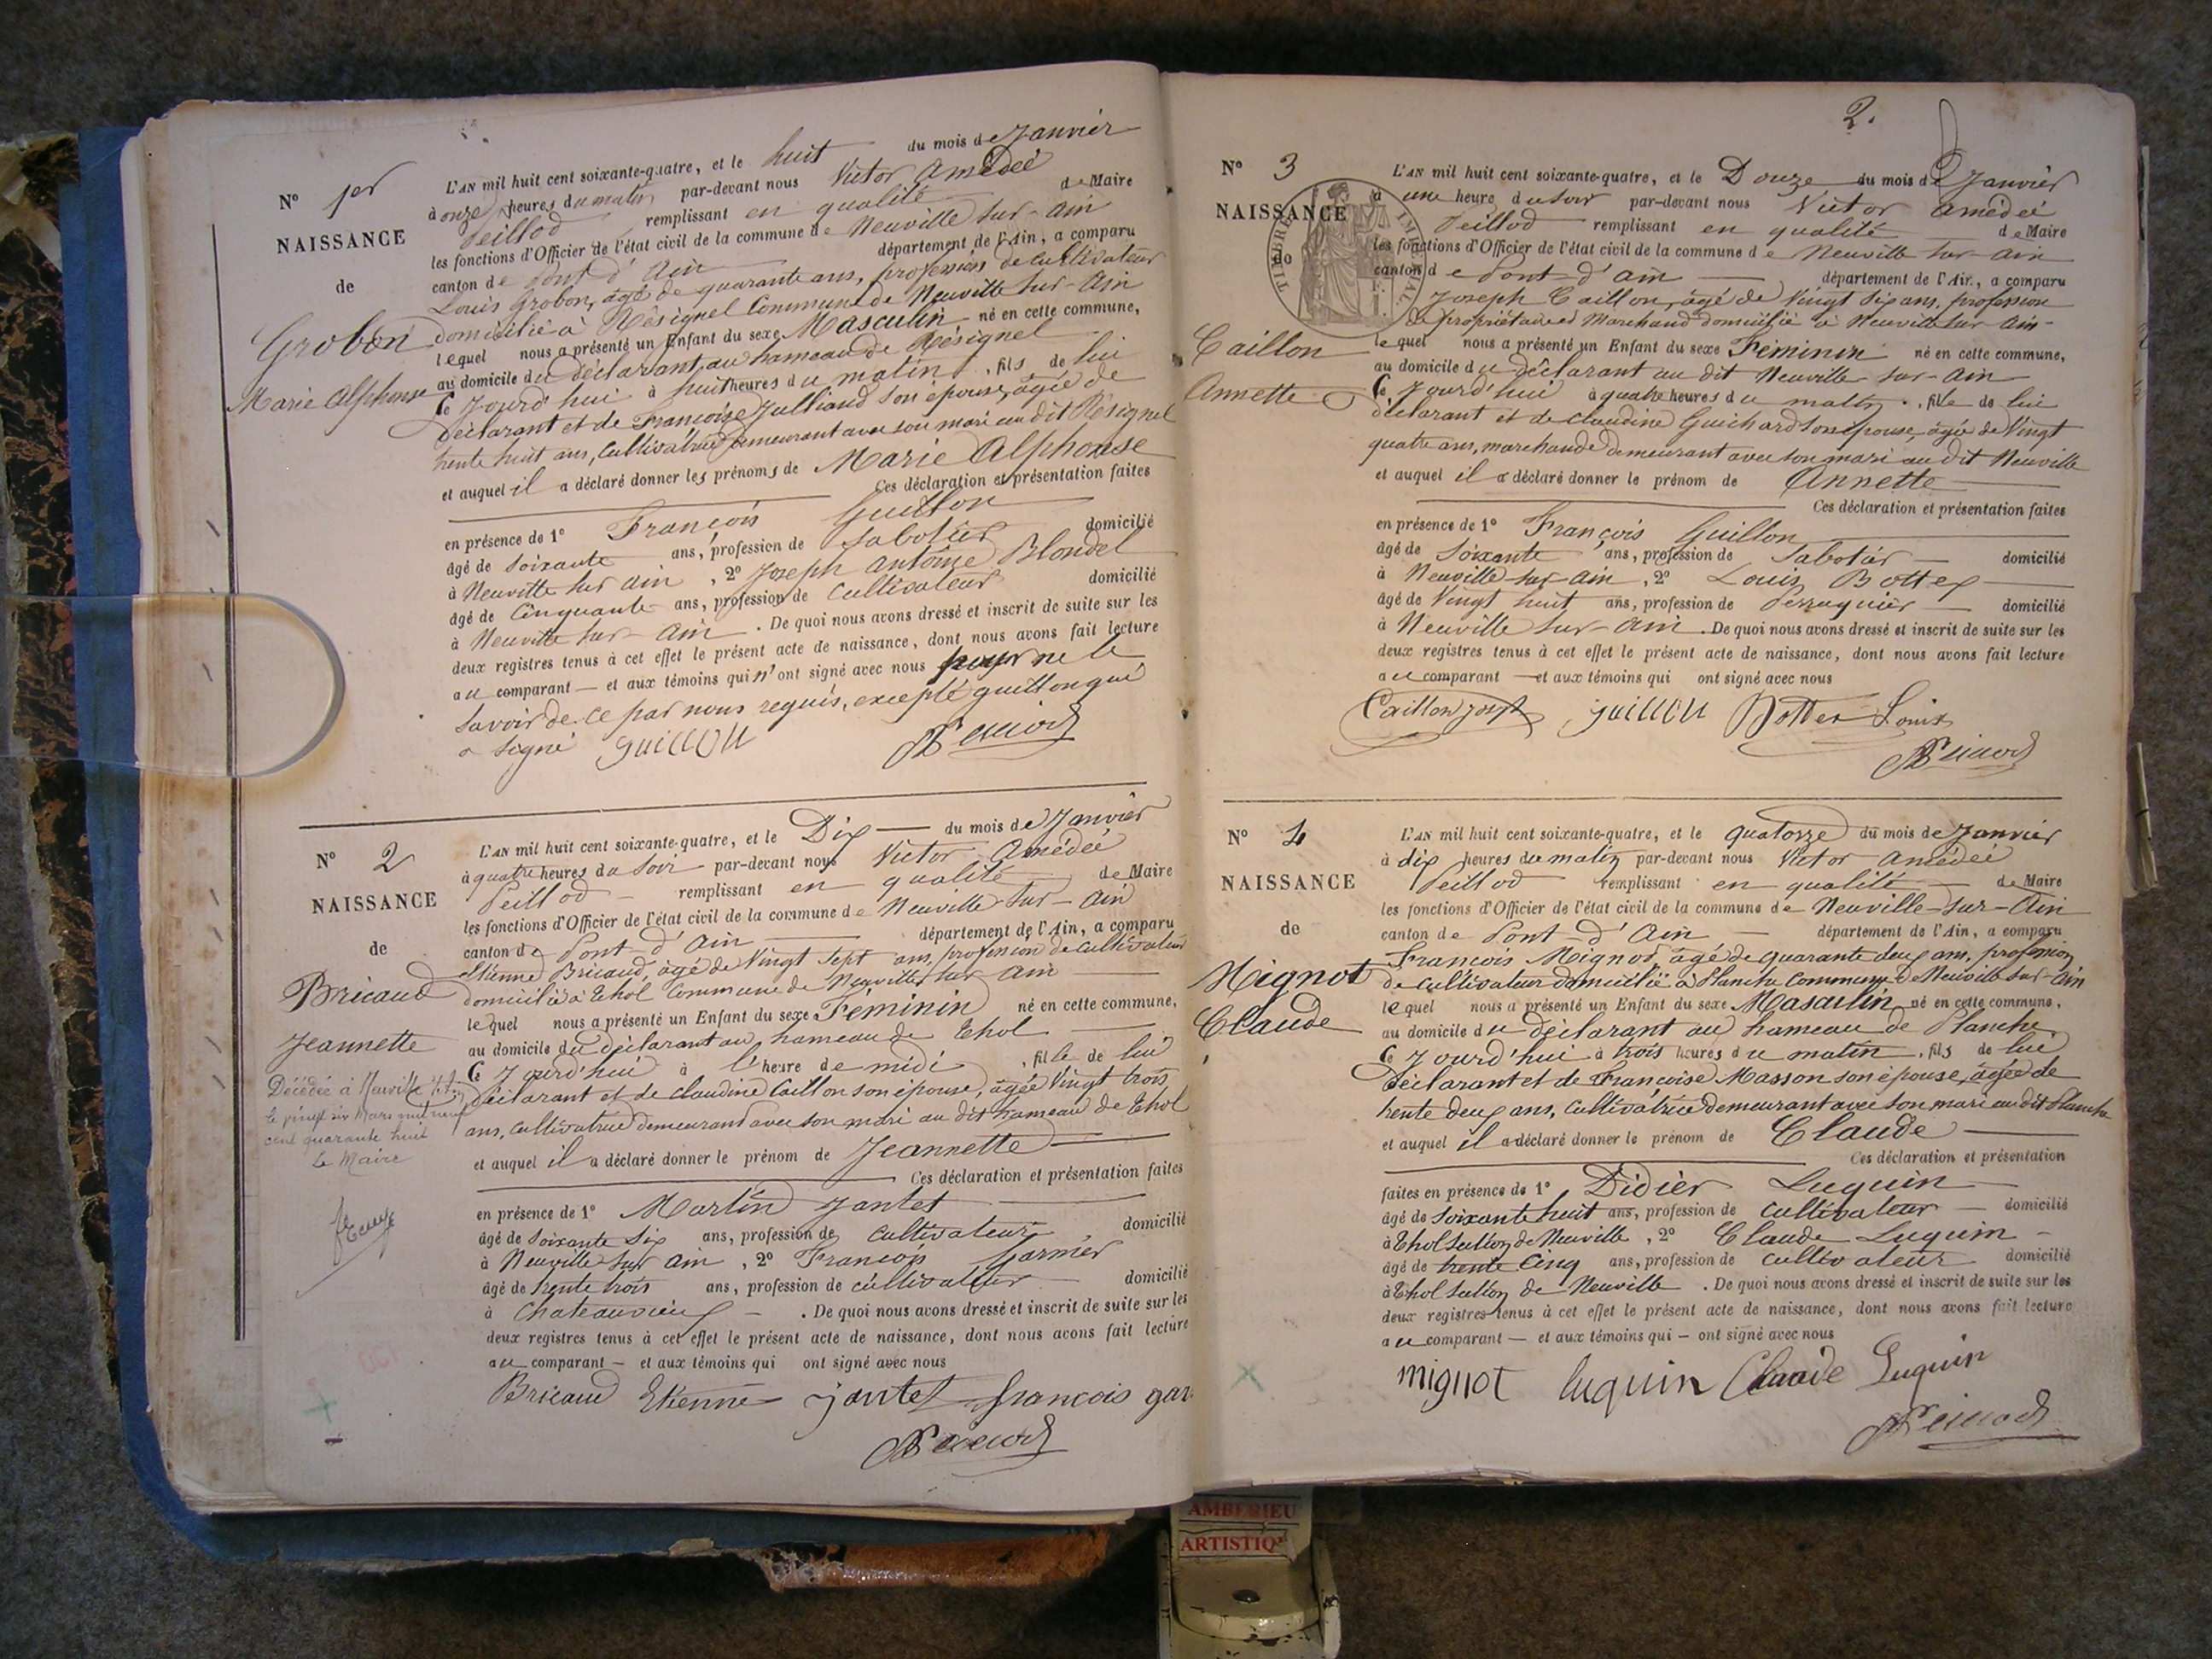 Nº 1er
NAISSANCE
de
Grobon
Marie Alphonse
L'AN mil huit cent soixante-quatre, et le huit du mois de Janvier
à onze heures du matin par-devant nous Victor Amédée
Peillod remplissant en qualité de Maire
les fonctions d'Officier de l'état civil de la commune de Neuville sur-Ain
canton de Pont d'Ain département de l'Ain, a comparu
Louis Grobon, âgé de quarante ans, profession de cultivateur
domicilié à Résignel Commune de Neuville sur-Ain
lequel nous a présenté un Enfant du sexe Masculin né en cette commune,
au domicile du déclarant, au hameau de Résignel
Ce Jourd'hui à huit heures du matin, fils de lui
déclarant et de Françoise Julliand son épouse, âgée de
trente huit ans, Cultivatrice demeurant avec son mari au dit Résignel
et auquel il a déclaré donner les prénoms de Marie Alphonse
Ces déclaration et présentation faites
en présence de 1º François Guillon
âgé de soixante ans, profession de Sabotier domicilié
à Neuville sur Ain, 2º Joseph Antoine Blondel
âgé de Cinquante ans, profession de cultivateur domicilié
à Neuville sur-Ain. De quoi nous avons dressé et inscrit de suite sur les
deux registres tenus à cet effet le présent acte de naissance, dont nous avons fait lecture
au comparant — et aux témoins qui n'ont signé avec nous pour ne le
savoir de ce par nous requis, excepté guillon qui
a signé guillon
Nº 2
NAISSANCE
de
Bricaud
Jeannette
Décédée à Neuville s/Ain
le vingt six Mars mil neuf
cent quarante huit
Le Maire
L'AN mil huit cent soixante-quatre, et le Dix — du mois de Janvier
à quatre heures du soir par-devant nous Victor Amédée
Peillod — remplissant en qualité de Maire
les fonctions d'Officier de l'état civil de la commune de Neuville-sur-Ain
canton de Pont d'Ain département de l'Ain, a comparu
Etienne Bricaud, âgé de Vingt sept ans, profession de cultivateur
domicilié à Thol Commune de Neuville sur Ain
lequel nous a présenté un Enfant du sexe Féminin né en cette commune,
au domicile du déclarant au hameau de Thol
Ce Jourd'hui à l'heure de midi, fille de lui
déclarant et de claudine Caillon son épouse, âgée Vingt trois
ans, cultivatrice demeurant avec son mari au dit hameau de Thol
et auquel il a déclaré donner le prénom de Jeannette
Ces déclaration et présentation faites
en présence de 1º Martin Jantet
âgé de soixante six ans, profession de cultivateur domicilié
à Neuville sur Ain, 2º François Garnier
âgé de trente trois ans, profession de cultivateur domicilié
à Chateauvieux —. De quoi nous avons dressé et inscrit de suite sur les
deux registres tenus à cet effet le présent acte de naissance, dont nous avons fait lecture
au comparant — et aux témoins qui ont signé avec nous
Bricaud Etienne jantet françois gar
2.
Nº 3
NAISSANCE
de
TIMBRE IMPERIAL.
Caillon
Annette
L'AN mil huit cent soixante-quatre, et le Douze du mois de Janvier
à une heure du soir par-devant nous Victor Amédée
Peillod remplissant en qualité de Maire
les fonctions d'Officier de l'état civil de la commune de Neuville sur-Ain
canton de Pont d'Ain — département de l'Ain, a comparu
Joseph Caillon, âgé de Vingt six ans, profession
de propriétaire et Marchand domicilié à Neuville sur Ain-
lequel nous a présenté un Enfant du sexe Féminin né en cette commune,
au domicile du déclarant au dit Neuville-sur-Ain
Ce Jourd'hui à quatre heures du matin, fille de lui
déclarant et de claudine Guichard son épouse, âgée de Vingt
quatre ans, marchande demeurant avec son mari au dit Neuville
et auquel il a déclaré donner le prénom de Annette
Ces déclaration et présentation faites
en présence de 1º François Guillon
âgé de soixante ans, profession de Sabotier — domicilié
à Neuville sur-Ain, 2º Louis Bottex
âgé de Vingt huit ans, profession de Perruquier — domicilié
à Neuville sur-Ain. De quoi nous avons dressé et inscrit de suite sur les
deux registres tenus à cet effet le présent acte de naissance, dont nous avons fait lecture
au comparant — et aux témoins qui ont signé avec nous
Caillon joseph guillon Bottex Louis
Nº 4
NAISSANCE
de
Mignot
Claude
L'AN mil huit cent soixante-quatre, et le quatorze du mois de Janvier
à dix heures du matin par-devant nous Victor Amédée
Peillod remplissant en qualité — de Maire
les fonctions d'Officier de l'état civil de la commune de Neuville-sur-Ain
canton de Pont-d'Ain — département de l'Ain, a comparu
François Mignot, âgé de quarante deux ans, profession
de cultivateur domicilié à Planche Commune de Neuville sur-Ain
lequel nous a présenté un Enfant du sexe Masculin né en cette commune,
au domicile du déclarant au hameau de Planche
Ce Jourd'hui à trois heures du matin, fils de lui
déclarant et de Françoise Masson son épouse, âgée de
trente deux ans, Cultivatrice demeurant avec son mari au dit Planche
et auquel il a déclaré donner le prénom de Claude
Ces déclaration et présentation
faites en présence de 1º Didier Luquin
âgé de soixante huit ans, profession de cultivateur — domicilié
à Thol section de Neuville, 2º Claude Luquin -
âgé de trente Cinq ans, profession de cultivateur domicilié
à Thol section de Neuville. De quoi nous avons dressé et inscrit de suite sur les
deux registres tenus à cet effet le présent acte de naissance, dont nous avons fait lecture
au comparant — et aux témoins qui — ont signé avec nous
mignot luquin Claude Luquin
AMBERIEU
ARTISTIQ